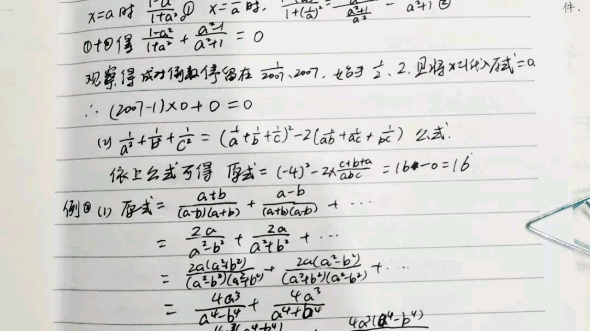 x=a时 \frac{1-a^2}{1+a^2}① x=\frac{1}{a}时. \frac{}{1+(\frac{1}{a})^2}= \frac{}{\frac{a^2+1}{a^2}} = a^2+1 ②
①+②得 \frac{1-a^2}{1+a^2} + \frac{a^2-1}{a^2+1} = 0
观察得成对倒数停留在 \frac{1}{2007}、2007, 始于 \frac{1}{2}、2. 且将x=1代入原式=0
∴ (2007-1)×0+0=0
(2) \frac{1}{a^2}+\frac{1}{b^2}+\frac{1}{c^2} = (\frac{1}{a}+\frac{1}{b}+\frac{1}{c})^2-2(\frac{1}{ab}+\frac{1}{ac}+\frac{1}{bc}) 公式.
依上公式可得 原式=(-4)^2-2×\frac{c+b+a}{abc} =16-0=16
例② (1) 原式= \frac{a+b}{(a-b)(a+b)} + \frac{a-b}{(a+b)(a-b)} + ···
= \frac{2a}{a^2-b^2} + \frac{2a}{a^2+b^2} + ···
= \frac{2a(a^2+b^2)}{(a^2-b^2)(a^2+b^2)} + \frac{2a(a^2-b^2)}{(a^2+b^2)(a^2-b^2)} + ···
= \frac{4a^3}{a^4-b^4} + \frac{4a^3}{a^4+b^4}
4a^3(a^4+b^4) 4a^3(a^4-b^4)
件.